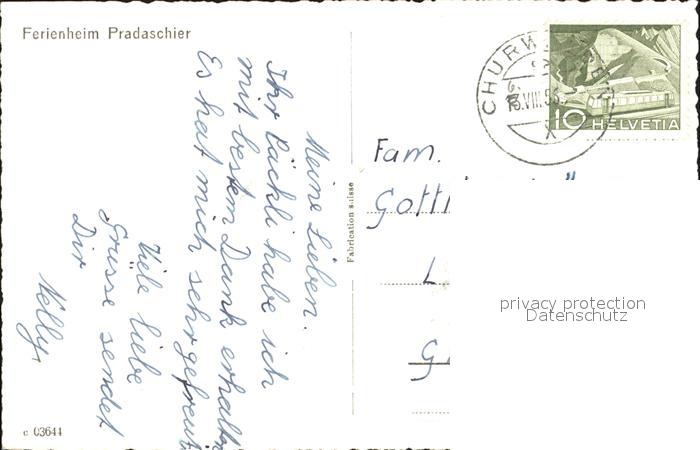 Ferienheim Pradaschier
Meine Lieben.
Ihr Päckli habe ich
mit bestem Dank erhalten
Es hat mich sehr gefreut
Viele liebe
Grüsse sendet
Dir
Nelly.
c 03644
Fabrication suisse
CHURWALDEN
VIII.55
10 HELVETIA
Fam.
privacy protection
Datenschutz